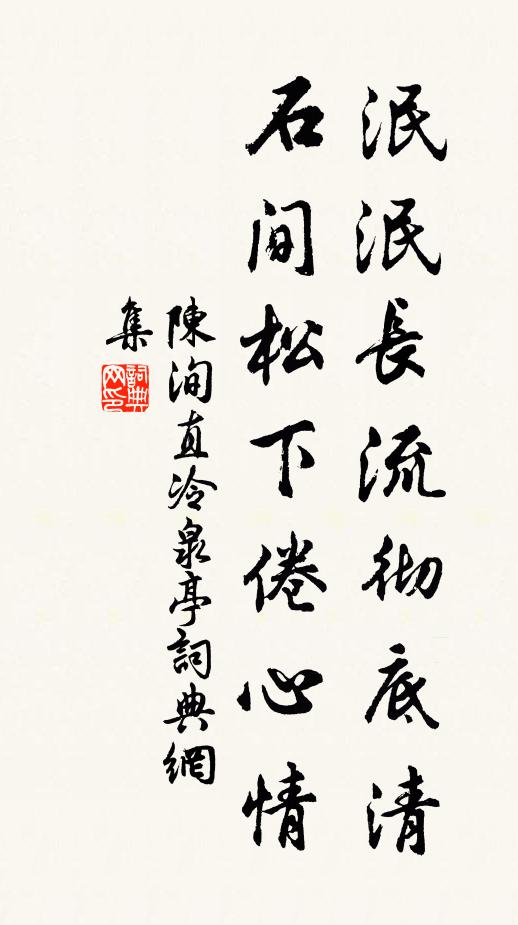 泯泯長流彻底清
石间松下倦心情
陳洵直冷泉亭詞典網
集
詞典
网印